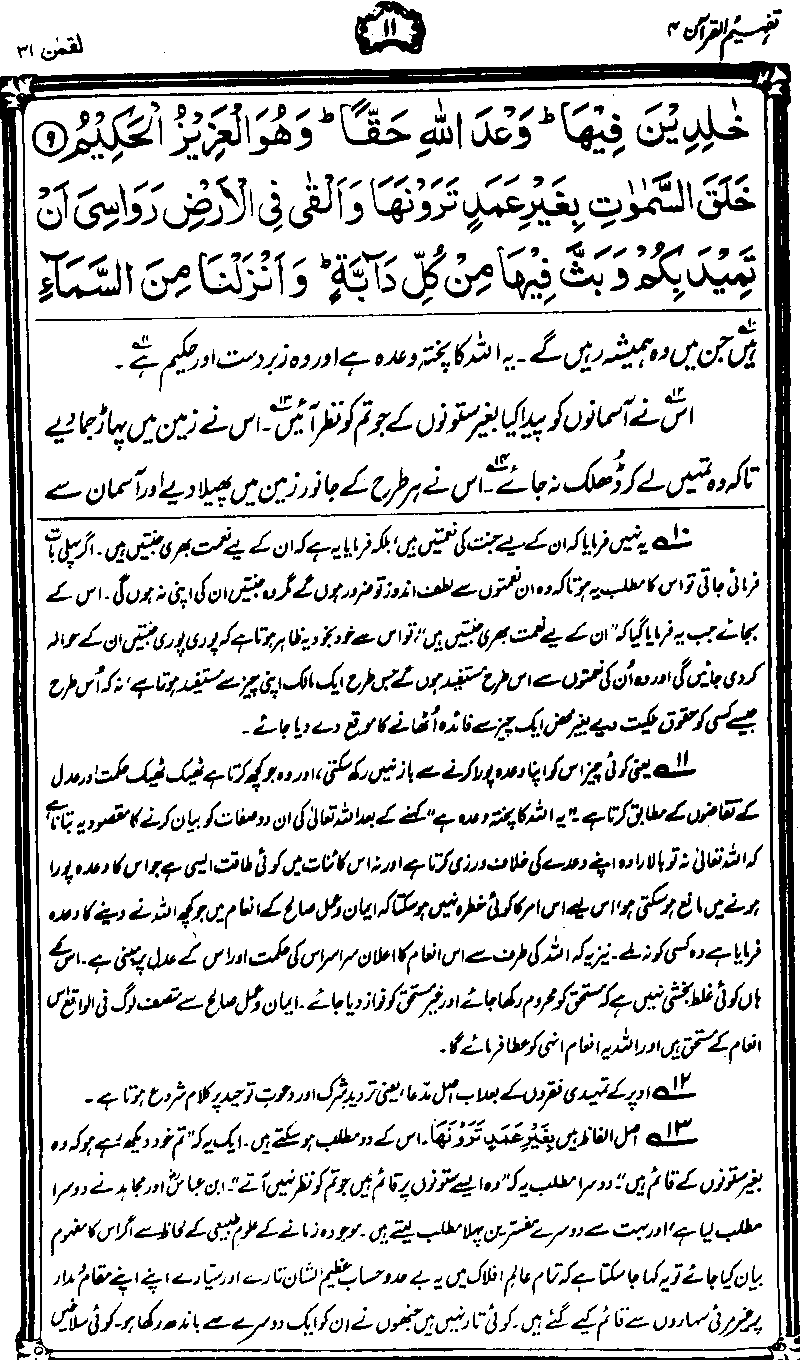 تفہیم القرآن ۴
۱۱
لقمٰن ۳۱
خٰلِدِيْنَ فِيْهَا ؕ وَعْدَ اللّٰهِ حَقًّا ؕ وَهُوَ الْعَزِيْزُ الْحَكِيْمُ ﴿۹﴾
خَلَقَ السَّمٰوٰتِ بِغَيْرِ عَمَدٍ تَرَوْنَهَا وَاَلْقٰى فِى الْاَرْضِ رَوَاسِىَ اَنْ
تَمِيْدَ بِكُمْ وَبَثَّ فِيْهَا مِنْ كُلِّ دَآبَّةٍ ؕ وَاَنْزَلْنَا مِنَ السَّمَآءِ
ہیں۱۰ جن میں وہ ہمیشہ رہیں گے۔ یہ اللہ کا پختہ وعدہ ہے اور وہ زبردست اور حکیم ہے۱۱۔
اس۱۲ نے آسمانوں کو پیدا کیا بغیر ستونوں کے جو تم کو نظر آئیں۱۳۔ اس نے زمین میں پہاڑ جما دیے
تاکہ وہ تمہیں لے کر ڈُھلک نہ جائے۱۴۔ اس نے ہر طرح کے جانور زمین میں پھیلا دیے اور آسمان سے
۱۰ یہ نہیں فرمایا کہ ان کے لیے جنت کی نعمتیں ہیں، بلکہ فرمایا یہ ہے کہ ان کے لیے نعمت بھری جنتیں ہیں۔ اگر پہلی بات
فرمائی جاتی تو اس کا مطلب یہ ہوتا کہ وہ ان نعمتوں سے لطف اندوز تو ضرور ہوں گے مگر وہ جنتیں ان کی اپنی نہ ہوں گی۔ اس کے
بجائے جب یہ فرمایا گیا کہ ”ان کے لیے نعمت بھری جنتیں ہیں“، تو اس سے خود بخود یہ ظاہر ہوتا ہے کہ پوری پوری جنتیں ان کے حوالہ
کر دی جائیں گی اور وہ اُن کی نعمتوں سے اس طرح مستفید ہوں گے جس طرح ایک مالک اپنی چیز سے مستفید ہوتا ہے، نہ کہ اُس طرح
جیسے کسی کو حقوق ملکیت دیے بغیر محض ایک چیز سے فائدہ اُٹھانے کا موقع دے دیا جائے۔
۱۱ یعنی کوئی چیز اس کو اپنا وعدہ پورا کرنے سے باز نہیں رکھ سکتی، اور وہ جو کچھ کرتا ہے ٹھیک ٹھیک حکمت اور عدل
کے تقاضوں کے مطابق کرتا ہے۔ ”یہ اللہ کا پختہ وعدہ ہے“ کہنے کے بعد اللہ تعالیٰ کی ان دو صفات کو بیان کرنے کا مقصود یہ بتانا ہے
کہ اللہ تعالیٰ نہ تو بالارادہ اپنے وعدے کی خلاف ورزی کرتا ہے اور نہ اس کائنات میں کوئی طاقت ایسی ہے جو اس کا وعدہ پورا
ہونے میں مانع ہو سکتی ہو، اس لیے اس امر کا کوئی خطرہ نہیں ہو سکتا کہ ایمان و عمل صالح کے انعام میں جو کچھ اللہ نے دینے کا وعدہ
فرمایا ہے وہ کسی کو نہ ملے۔ نیز یہ کہ اللہ کی طرف سے اس انعام کا اعلان سراسر اس کی حکمت اور اس کے عدل پر مبنی ہے۔ اس کے
ہاں کوئی غلط بخشی نہیں ہے کہ مستحق کو محروم رکھا جائے اور غیر مستحق کو نواز دیا جائے۔ ایمان و عمل صالح سے متصف لوگ فی الواقع اس
انعام کے مستحق ہیں اور اللہ یہ انعام انہی کو عطا فرمائے گا۔
۱۲ اوپر کے تمہیدی فقروں کے بعد اب اصل مدعا، یعنی تردیدِ شرک اور دعوتِ توحید پر کلام شروع ہوتا ہے۔
۱۳ اصل الفاظ ہیں بِغَيْرِ عَمَدٍ تَرَوْنَهَا۔ اس کے دو مطلب ہو سکتے ہیں۔ ایک یہ کہ ”تم خود دیکھ رہے ہو کہ وہ
بغیر ستونوں کے قائم ہیں“۔ دوسرا مطلب یہ کہ ”وہ ایسے ستونوں پر قائم ہیں جو تم کو نظر نہیں آتے“۔ ابن عباسؓ اور مجاہد نے دوسرا
مطلب لیا ہے، اور بہت سے دوسرے مفسّرین پہلا مطلب لیتے ہیں۔ موجودہ زمانے کے علوم طبیعی کے لحاظ سے اگر اس کا مفہوم
بیان کیا جائے تو یہ کہا جا سکتا ہے کہ تمام عالمِ افلاک میں یہ بے حد و حساب عظیم الشان تارے اور سیارے اپنے اپنے مقام و مدار
پر غیر مرئی سہاروں سے قائم کیے گئے ہیں۔ کوئی تار نہیں ہیں جنھوں نے ان کو ایک دوسرے سے باندھ رکھا ہو۔ کوئی سلاخیں